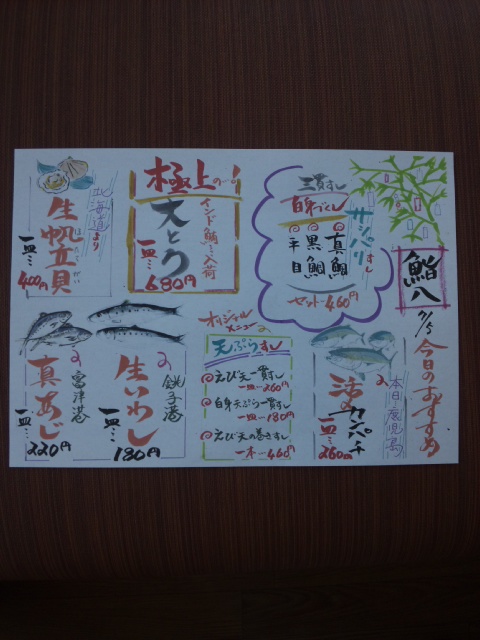 鮨八
7/5
今日のおすすめ
三貫すし
白身づくし
サッパリすし
真鯛
黒鯛
平目
セット…460円
極上の一皿
インド鮪…入荷
大とろ
一皿…680円
北海道より
生帆立貝
ほたてがい
一皿…400円
本日・鹿児島
活〆カンパチ
一皿…260円
オリジナルメニュー
天ぷらすし
えび天一貫すし
一皿…260円
白身天ぷら一貫すし
一皿…180円
えび天の巻きすし
一本…460円
銚子港
生いわし
一皿…180円
富津港
真あじ
一皿…220円